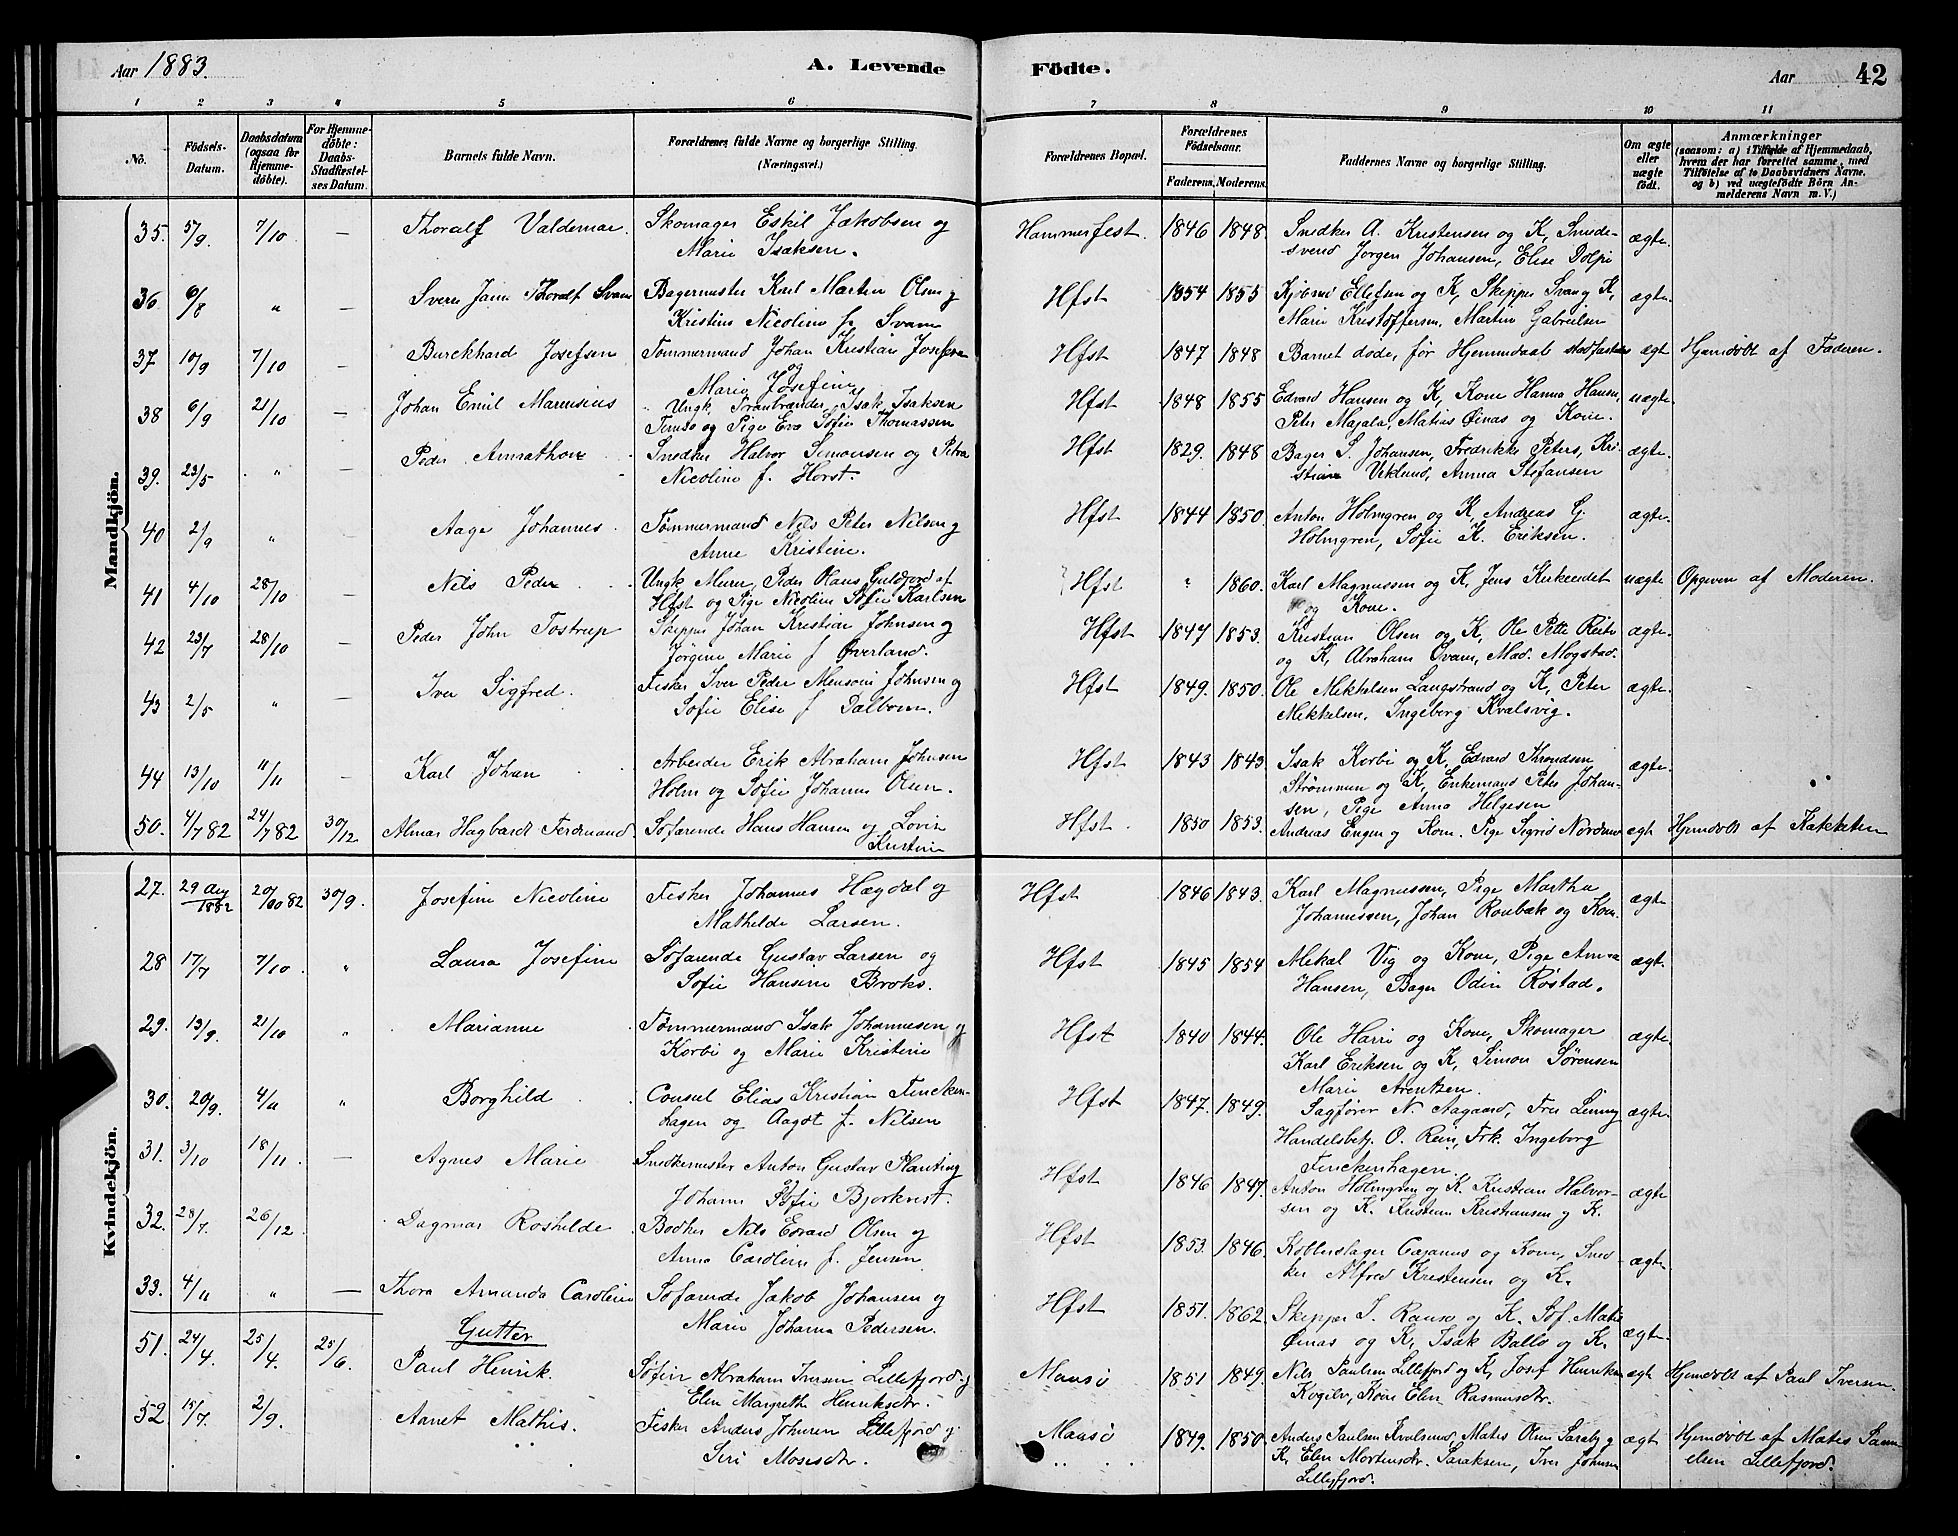 Aar 1883.
A. Levende Födte.
Aar 42
1 2 3 4 5 6 7 8 9 10 11
No.
Födsels-Datum.
Daabsdatum (ogsaa for Hjemme-döbte).
For Hjemme-döbte: Daabs-Stadfæstel-ses Datum.
Barnets fulde Navn.
Forældrenes fulde Navne og borgerlige Stilling. (Næringsvei.)
Forældrenes Bopæl.
Forældrenes Födselsaar.
Faderens. Moderens.
Faddernes Navne og borgerlige Stilling.
Om ægte eller uægte födt.
Anmærkninger
(saasom: a) i Tilfælde af Hjemmedaab,
hvem der har forrettet samme, med
Tilföielse af to Daabsvidners Navne,
og b) ved uægtefödte Börn An-
melderens Navn m. V.)
Mandkjön.
35. 5/9. 7/10 — Thoralf Valdemar. Skomager Eskil Jakobsen og Hammerfest. 1846 1848. Snedker A. Kristensen og K, Smede- ægte.
Marie Isaksen. svend Jørgen Johansen, Elise Dolpi
36 6/8 " — Sverre Thoralf Svane Bagermester Karl Martin Olsen og Hfst 1854 1855 Ellefsen og K, Skipper Svane og K, ægte.
Kristine Nicoline f. Svane Marie Kristoffersen, Martin Gabrielsen
37 10/9 7/10 — Burckhard Josefsen Tømmermand Johan Kristian Josefsen Hfst 1847 1848 Barnet døde, før Hjemmedaab stadfæstedes ægt Hjemdøbt af Faderen.
og
Marie Josefine
38 6/9 21/10 — Johan Emil Marensius Ungk. Tranbrænder Isak Isaksen Hfst 1848 1855 Edvard Hansen og K, Kone Hanna Hansen, uægte.
og Pige Eva Sofie Thomassen Peter Majala, Matias Øinas og Kone.
39. 23/5 " — Peder Snedker Halvor Simonsen og Petra Hfst 1829. 1848 Bager S. Johansen, Fredrikke Peters, Kri- ægte.
Nicoline f. Horst. stiane Viklund, Anna Stefansen
40 2/9 " Aage Johannes Tømmermand Nils Peter Nilsen og Hfst 1844 1850. Anton Holmgren og K, Andreas G. ægte.
Anne Kristine. Holmgren, Sofie K. Eriksen.
41 4/10 28/10 — Nils Peder Ungk Murer Peder Olaus Guldfjord af Hfst " 1860. Karl Magnussen og K, Jens uægte Opgiven af Moderen.
Hfst og Pige Nicoline Sofie Karlsen og Kone.
42 23/7 28/10 — Peder John Tostrup Skipper Johan Kristian Johnsen og Hfst 1847 1853. Kristian Olsen og K, Ole Petter ægte.
Jørgine Marie f Øverland. og K, Abraham Svane, Mad. Mogstad.
43 2/5 " — Iver Sigfred. Fisker Iver Peder Johnsen og Hfst 1849. 1850. Ole Mikkelsen Langstrand og K, Peter ægte.
Sofie Elise f Dalbom. Mikkelsen, Ingeborg Kvalsvig.
44 13/10 11/11 — Karl Johan Arbeider Erik Abraham Johnsen Hfst 1843 1843. Isak Korbi og K, Edvard Throndsen ægte.
Holm og Sofie Johanne Olsen. Strømmen og K, Enkemand Peter Johan-
sen, Pige Anna Helgesen
50. 4/7 82 24/7 82 30/12 Almar Hagbardt Ferdinand Søfarende Hans Hansen og Lovise Hfst 1850 1853. Andreas Engen og Kone. Pige Sigrid ægt Hjemdøbt af
Kristine
Kvindekjön.
27. 29 Aug 1882 20/10 82 30/9. Josefine Nicoline Fisker Johannes Hægdal og Hfst 1846 1843. Karl Magnussen, Pige Martha ægte
Mathilde Larsen. Johannessen, Johan Ronbæk og Kone.
28 17/7 7/10 " Laura Josefine Søfarende Gustav Larsen og Hfst 1845 1854 Mikal Vig og Kone, Pige Anna ægt.
Sofie Hansine Broks. Hansen, Bager Odin Røstad.
29. 13/9. 21/10 " Marianne Tømmermand Isak Johannesen og Hfst 1840 1844. Ole Harri og Kone, Skomager ægte.
Korbi og Marie Kristine Karl Eriksen og K, Simon Sørensen
Marie Arentzen.
30. 20/9. 4/11 " Borghild Consul Elias Kristian Fincken- Hfst 1847. 1849. Sagfører N. Aagaard, Frk Linny ægte.
hagen og Aagot f. Nilsen Handelsbetj. O. Rein, Frk. Ingeborg
Finckenhagen.
31. 3/10 18/11 — Agnes Marie Snedkermester Anton Gustav Planting Hfst 1846 1847. Anton Holmgren og K. Kristian Halvor- ægte
og
Johanne Sofie Bjørkvist. sen og K. Kristian Kristiansen og K.
32. 28/7. 26/12 Dagmar Roshilde Bødker Nils Edvard Olsen og Hfst 1853. 1846. Kobberslager Cajanus og Kone, Sned- ægte.
Anna Caroline f. Jensen ker Alfred Kristensen og K.
33. 4/11 " — Thora Amanda Caroline Søfarende Jakob Johansen og Hfst 1851. 1862. Skipper J. og K. Søf. Matis ægte.
Marie Johanna Pedersen. Øinas og K, Isak Ballo og K.
Gutter
51. 24/4. 25/4. 25/6. Paul Henrik. Søfin Abraham Iversen Lillefjord og Maasø 1851 1849. Nils Paulsen Lillefjord og K, Josef Henriksen ægt Hjemdøbt af Paul Iversen.
Elen Margrethe Henriksdtr. Kone Elen Rasmusdtr.
52 15/7. 2/9. Aanet Mathis. Fisker Anders Johnsen Lillefjord og Maasø 1849. 1850. Anders Paulsen Kvalsund, Mates Olsen Saraby og ægt Hjemdøbt af Mates Sam-
Siri Mosesdtr. K, Elen Mortensdtr. Saraksen, Iver Johnsen elsen Lillefjord.
Lillefjord.